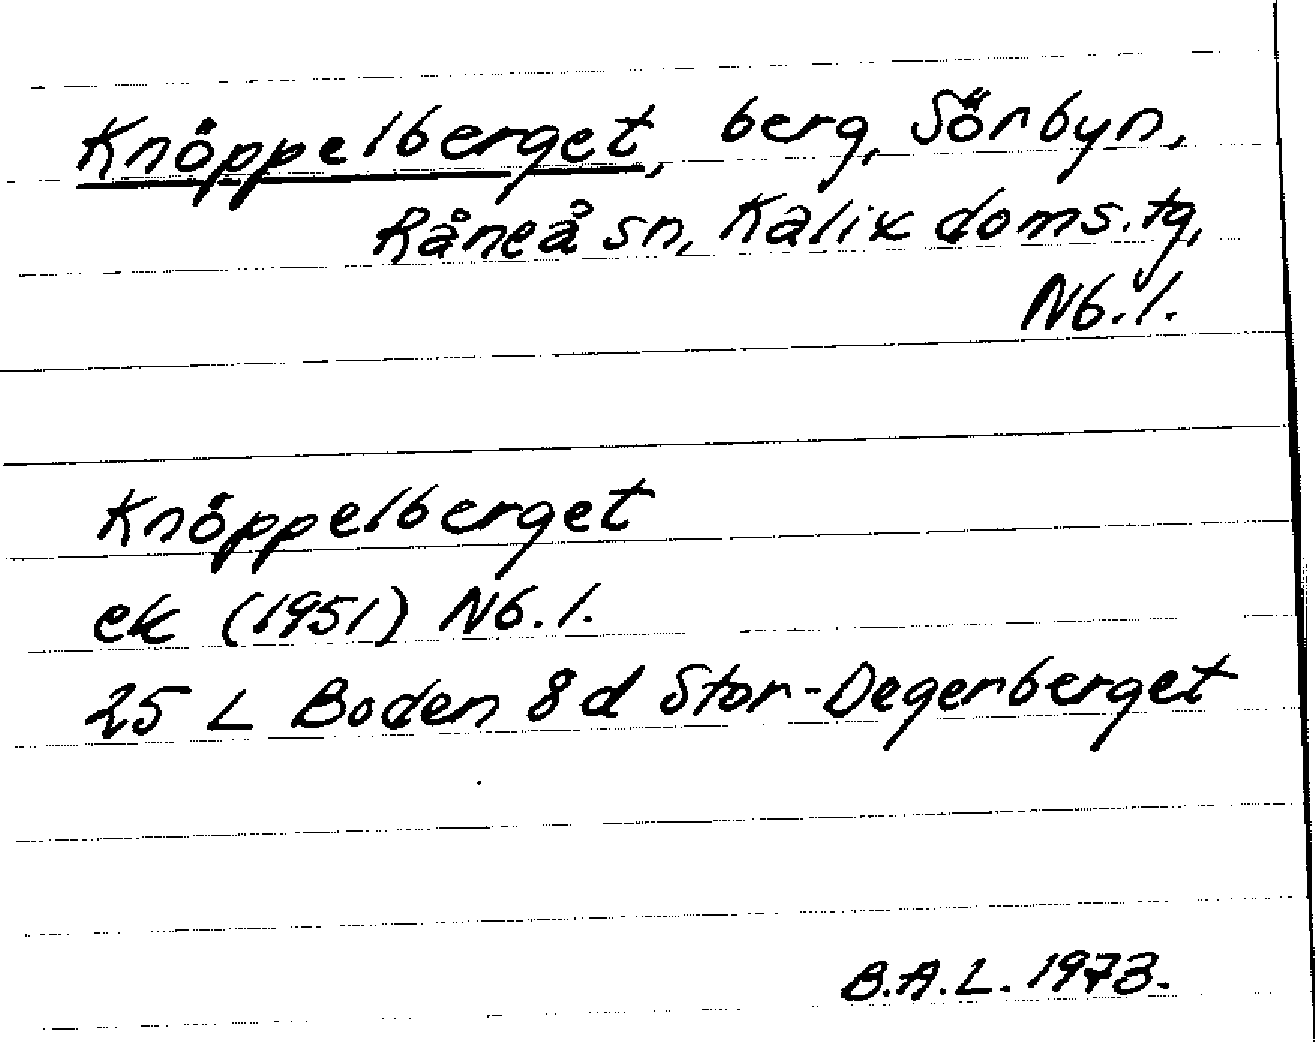 Knöppelberget, berg, Sörbyn,
Råneå sn, Kalix doms.tg,
Nb.l.
Knöppelberget
ek (1951) Nb.l.
25 L Boden 8d Stor-Degerberget
B.A.L. 1973.